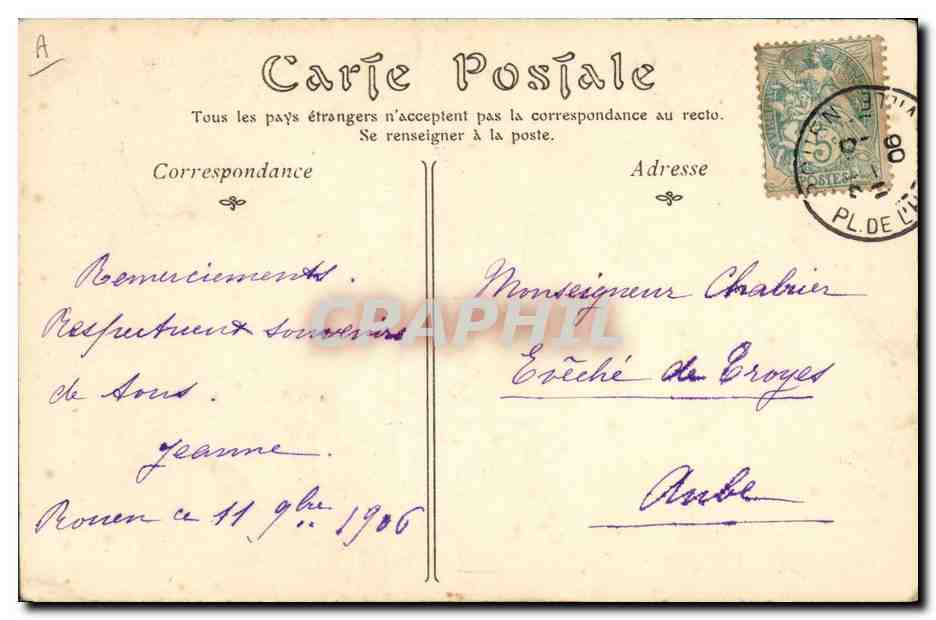 A
Carte Postale
Tous les pays étrangers n'acceptent pas la correspondance au recto.
Se renseigner à la poste.
Correspondance
Adresse
5
POSTES
ROUEN
VILLE
06
PL. DE L'H
Remerciements.
Respectueux souvenirs
de tous.
Jeanne.
Rouen ce 11 9bre 1906
Monseigneur Chabrier
Evêché de Troyes
Aube
CPAPHIL